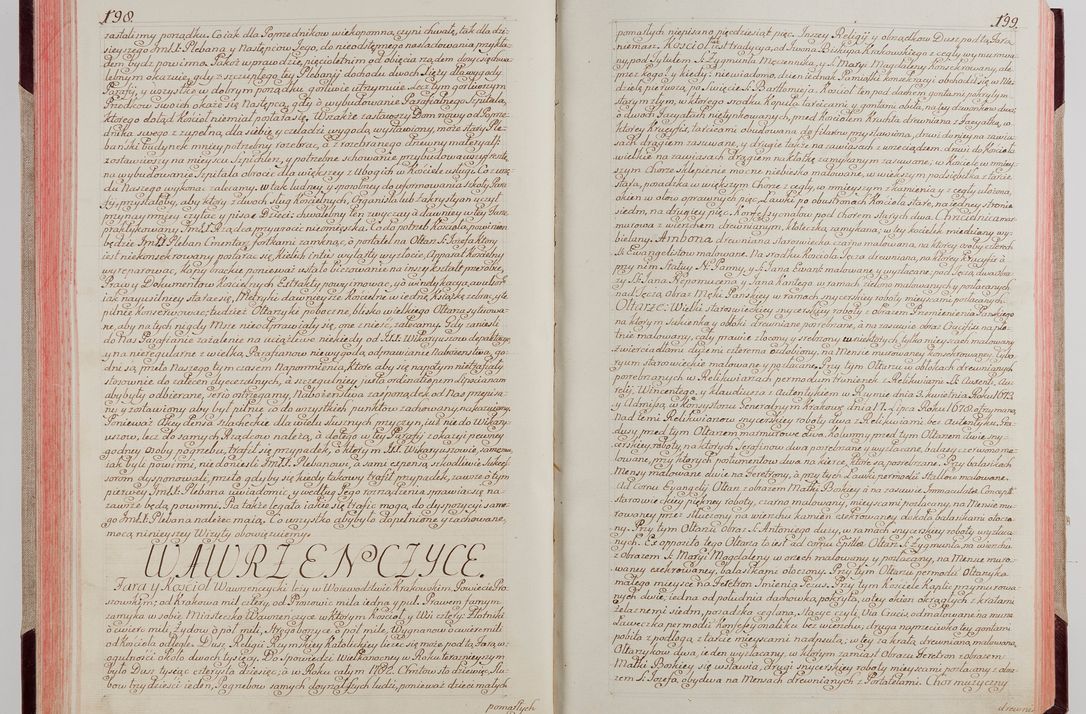 198.
zastaliśmy porządku. Co jak dla Poprzedników wiekopomną czyni chwałę, tak dla dzi-
sieyszego Jmć X. Plebana y Następców Jego, do nieodstępnego nasladowania przykła-
dem bydź powinna. Jakoż wprawdzie, pięcioletnim od objęcia rządem
letnym okazuie, gdy z szczupłego tey Plebanii dochodu dwóch Xięży dla wygody
Parafii, y wszystko w dobrym porządku gorliwie utrzymuie. Lecz tym gorliwszym
Przodków swoich okaże się Następcą, gdy o wybudowanie Parafialnego Szpitala,
którego dotąd Kościoł nie miał postara się. Wszakże zastawszy Dom nowy od Poprze-
dnika swego z zupełną dla siebie y czeladzi wygodą wystawiony, może stary Ple-
bański budynek mniey potrzebny rozebrać, a z rozebranego drzewa materyał:
zostawiwszy na mieyscu Szpichlerz, y potrzebne schowanie
na wybudowanie Szpitala obrocić dla większey z Ubogich w Kościele usługi. Co z urzę-
du Naszego wykonać zalecamy. W tak ludney y sposobney do uformowania szkoły Para-
fii, przystałoby, aby który z dwóch sług Kościelnych, Organista lub Zakrystyan uczył
przynaymniey czytać y pisać Dzieci: chwalebny ten zwyczay a dawniey w tey Farze
praktykowany Jmć X. Rządca przywrocić nieomieszka. Co do potrzeb Kościoła, powinien
będzie Jmć X. Pleban Cmentarz fortkami zamknąć, o portatel na Ołtarz S. Jozefa który
iest niekonsekrowany postarać się, kielich intus wytarty wyzłocić, Apparat Kościelny
wyreparować,
Praw y Dokumentow Kościelnych Extrakty powyimować,
jak nayusilniey starać się, Metryki dawnieysze Kościelne w iedne Xiążkę zebrać, y te
pilnie konserwować; tudzież Ołtarzyki poboczne, blisko wielkiego Ołtarza sytuowa-
ne, aby na tych nigdy Msze nieodprawiały się, one znieść, zalecamy. Gdy zanieśli
do Nas Parafianie zażalenie na uciążliwe niekiedy od XX. Wikaryuszow
y na nieregularne z wielką Parafianow niewygodą odprawianie Nabożeństwa, go-
dni są, przeto Naszego tym czasem Napomnienia, które aby się napotym nietrafiały
stosownie do zaleceń dyecezalnych, a szczegulniey juxta ordinationem Lipscianam
abyby ły odbierane, serio ostrzegamy, Nabożeństwa zaś porządek od Nas przepisa-
ny y zostawiony aby był pilnie co do wszystkich punktow zachowany nakazuiemy.
Ponieważ Akcydensa szlacheckie dla wielu słusznych przyczyn, iuż nie do Wikary-
uszow, lecz do samych Rządcow należą, a dotego w tey Parafii z okazyi pewney
godney osoby pogrzebu, trafił się przypadek, o którym XX. Wikaryuszowie, same mu
jak byli powinni, nie donieśli Jmć X. Plebanowi, a sami expensą szkodliwie Sukces-
sorom dysponowali, przeto gdyby się kiedy takowy trafił przypadek, zawsze o tym
pierwey Jmć X. Plebana uwiadomić, y według Jego rozrządzenia sprawiać się na
zawsze będą powinni. Jako także legata iakie się trafić mogą, do dyspozycyi same-
go Jmć X. Plebana należeć maią. Co wszystko abyby ło dopełnione y zachowane,
mocą ninieyszey Wizyty obowiązuiemy.
WAWRZENCZYCE.
Fara y Kościoł Wawrzenczycki leży w Wojewodztwie Krakowskim, Powiecie Pro-
szowskim; od Krakowa mil cztery, od Proszowic mila iedna y puł. Prawem farnym
zamyka w sobie Miasteczko Wawrzenczyce w którym Kościoł, y Wsi cztery, Złotniki
o ćwierć mili, Żydow o poł mili, Stręgoborzyce o poł mile, Tropiszow o ćwierć mili
od Kościoła odległe. Dusz Religii Rzymskiey Katolickiey liczyć się może pod tą Farą, w o-
gulności około dwóch tysięcy. Do Spowiedzi Wielkanocney w Roku teraznieyszym
było Dusz tysiąc czterysta dziesięć; a w Roku całym 1782. Chrztów sto dziewięć, Slu-
bow trzydzieści ieden, Pogrzebow samych doyrzałych ludzi, ponieważ dzieci małych
pomarłych
199.
pomarłych niepisano pięćdziesiąt pięć. Inszey Religii y obrządkow Dusz pod tą Farą
niemasz. Kościoł iest tradycya, od Iwona Biskupa Krakowskiego z cegły wymurowa-
ny, pod Tytułem S. Zygmunta Męczennika, y S. Maryi Magdaleny konsekrowany, ale
przez kogo y kiedy: niewiadomo, dzień iednak Pamiątki konsekracyi obchodzi się, w Nie-
dzielę pierwszą, po Święcie S. Bartłomieja. Kościoł ten pod dachem gontami pokrytym
starym złym, w którego srzodku Kopuła tarcicami y gontami obita, na tey dzwonkow dwa:
o dwóch Facyatach nietynkowanych, przed Kościołem Kruchta drewniana z Facyatką, w-
którey Krucyfix, tarcicami obudowana do filarów przystawiona, drzwi do niey na zawia-
sach drągiem zasuwane, y drugie także na zawiasach z wrzeciądzem: drzwi do Kościoła
wielkie na zawiasach drągiem na kłotkę zamykanym zasuwane; w Kościele w mniey-
szym Chorze sklepienie mocne niebiesko malowane, w większym podsiębitka z tarcic
stara, posadzka w większym Chorze z cegły, w mnieyszym z kamienia y z cegły ułożona,
okien w ołow oprawnych pięć, Ławki po obu stronach Kościoła stare, na iedney stronie
siedm, na drugiey pięć. Konfessyonałow pod chorem starych dwa. Chrzcilnica mar-
murowa z wierzchem drewnianym, kłoteczką zamykana; w tey kociełek miedziany wy-
bielany. Ambona drewniana staroswiecka czarno malowana, na którey osoby czterech
SS. Ewangelistow malowane. Na srzodku Kościoła Tęcza drewniana, na którey Krucyfix a
przy nim Statuy N. Panny, y S. Jana Ewan: malowane y wyzłacane; pod Tęczą dwa obra-
zy S. Jana Nepomucena y S. Jana Kantego w ramach zielono malowanych, y pozłacanych
nad Tęczą, Obraz Męki Panskiey w ramach snycerskiey roboty mieyscami pozłacanych.
Ołtarze: Wielki staroswiecki snycerskiey roboty z obrazem Przemienienia Panskiego
na którym Sukienka y obłoki drewniane posrebrzane, a na zasuwie obraz Crucyfixa na pło-
tnie malowany, cały prawie złocony y srebrzony w niektórych tylko mieyscach malowany
zwierciadłami dużemi czterema ozdobiony, na Mensie murowaney konsekrowaney. Cybo-
ryum staroswieckie malowane y pozłacane. Przy tym Ołtarzu w obłokach drewnianych
posrebrzanych w Relikwiarzach per modum Tunicnek z Relikwiami SS. Clasent, Au-
relii, Wincentego, y Klaudiusza z Autentykiem w Rzymie dnia 3. kwietnia Roku 1673.
y Admissą w konsystorzu Generalnym Krakow: dnia 17. Lipca Roku 1678. otrzymaną.
Nad temi Relikwiarzow snycerskiey roboty dwa z Relikwiami bez Autentyku. Gra-
dusy przed tym Ołtarzem marmurowe dwa. Kolumny przed tym Ołtarzem dwie sny-
cerskiey roboty, na których Serafinow dwa posrebrzane y wyzłacane, balasy czerwono ma-
lowane, przy których postumentow dwa na kierce, które są posrebrzane. Przy balaskach
Mensy malowane dwie na Feretrony, a przy tych Ławki permodū Stallow malowane.
Ad Cornu Evangelij Ołtarz z obrazem Matki Boskiey a na zasuwie Immaculatæ Concept:
staroswieckiey piękney roboty, czarno malowany, mieyscami pozłacany, na Mensie mu-
rowaney przez stłuczony na wierzchu kamień exekrowaney, do koła balaskami otoczo-
ny. Przy tym Ołtarzu obraz S. Antoniego duży, w ramach snycerskiey roboty wyzłaca-
nych. Ex opposito tego Ołtarza to iest ad cornu Epistolæ Ołtarz S. Zygmunta, na wierzchu
z Obrazem S. Maryi Magdaleny w orzech malowany, mieyscami pozłacany, na Mensie muro-
waney exekrowaney, balaskami obtoczony. Przy tym Ołtarzu permodū Ołtarzyka
małego mieysce na Feretron Imienia Jezus. Przy tym Kościele Kaplic przymurowa-
nych dwie, iedna od południa dachowką pokryta, w tey okien okrągłych z kratami
żelaznemi siedm, posadzka ceglana, Stacye czyli Via Crucis odmalowane na murze
Ławeczka permodū Konfessyonaliku bez wierzchu; druga naprzeciwko tey gontami
pobita z podłogą z tarcic mieyscami nadpsutą; w tey są krata drewniana malowana,
Ołtarzykow dwa, ieden wyzłacany, w którym zamiast Obrazu Feretron z obrazem
Matki Boskiey się wstawia, drugi snycerskiey roboty mieyscami pozłacany z obra-
zem S. Jozefa, obydwa na Mensach drewnianych z Portatelami. Chor muzyczny
drewnia-